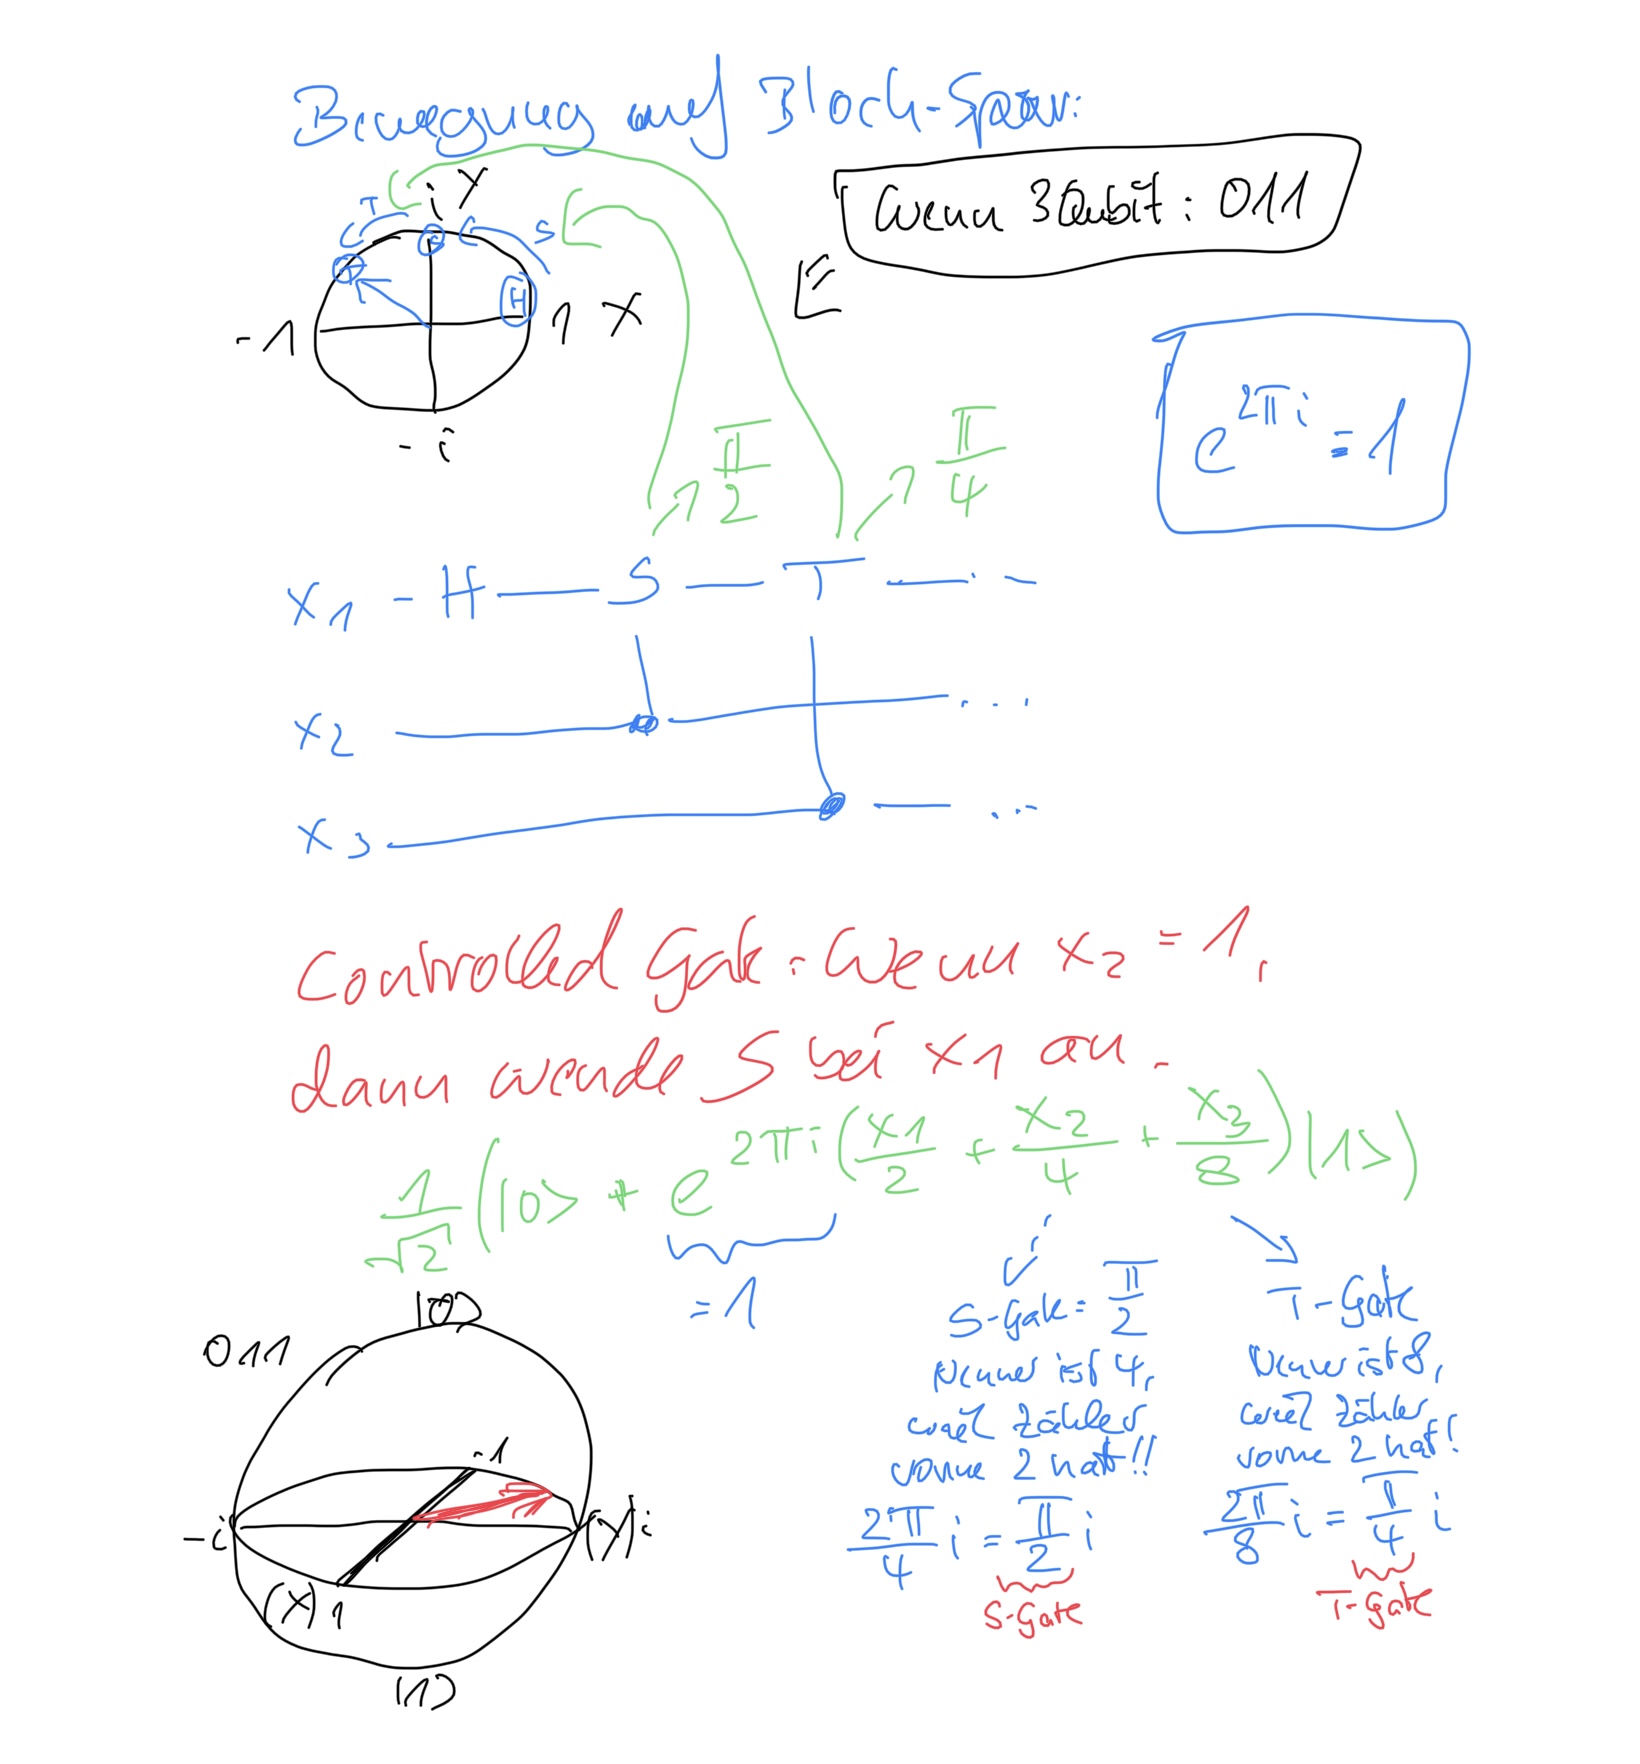 Bewegung auf Bloch-Spaar:
Wenn 3Qubit: 011
i Y
T
S
S
T
H
-1
1 X
-i
E
e^{2πi} = 1
π/2
π/4
x1 - H — S — T — · -
x2 ...
x3 — ...
Controlled Gate: Wenn x2 = 1,
dann wende S bei x1 an.
1/√2 (|0> + e^{2πi(x1/2 + x2/4 + x3/8)} |1>)
= 1
S-Gate = π/2
Nenner ist 4,
weil Zähler
vorne 2 hat!!
2π/4 i = π/2 i
S-Gate
T-Gate
Nenner ist 8,
weil Zähler
vorne 2 hat!
2π/8 i = π/4 i
T-Gate
|0>
011
-1
-i
(Y) i
(X) 1
|1>